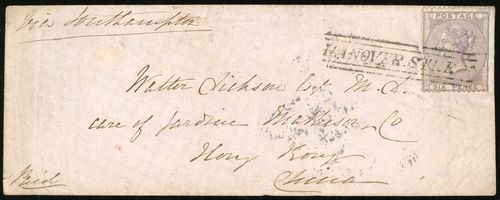 via Southampton
POSTAGE
HANOVER ST. R
SIX PENCE
Walter Dickson Esq M.D.
care of Jardine Matheson Co
Hong Kong
China
Paid